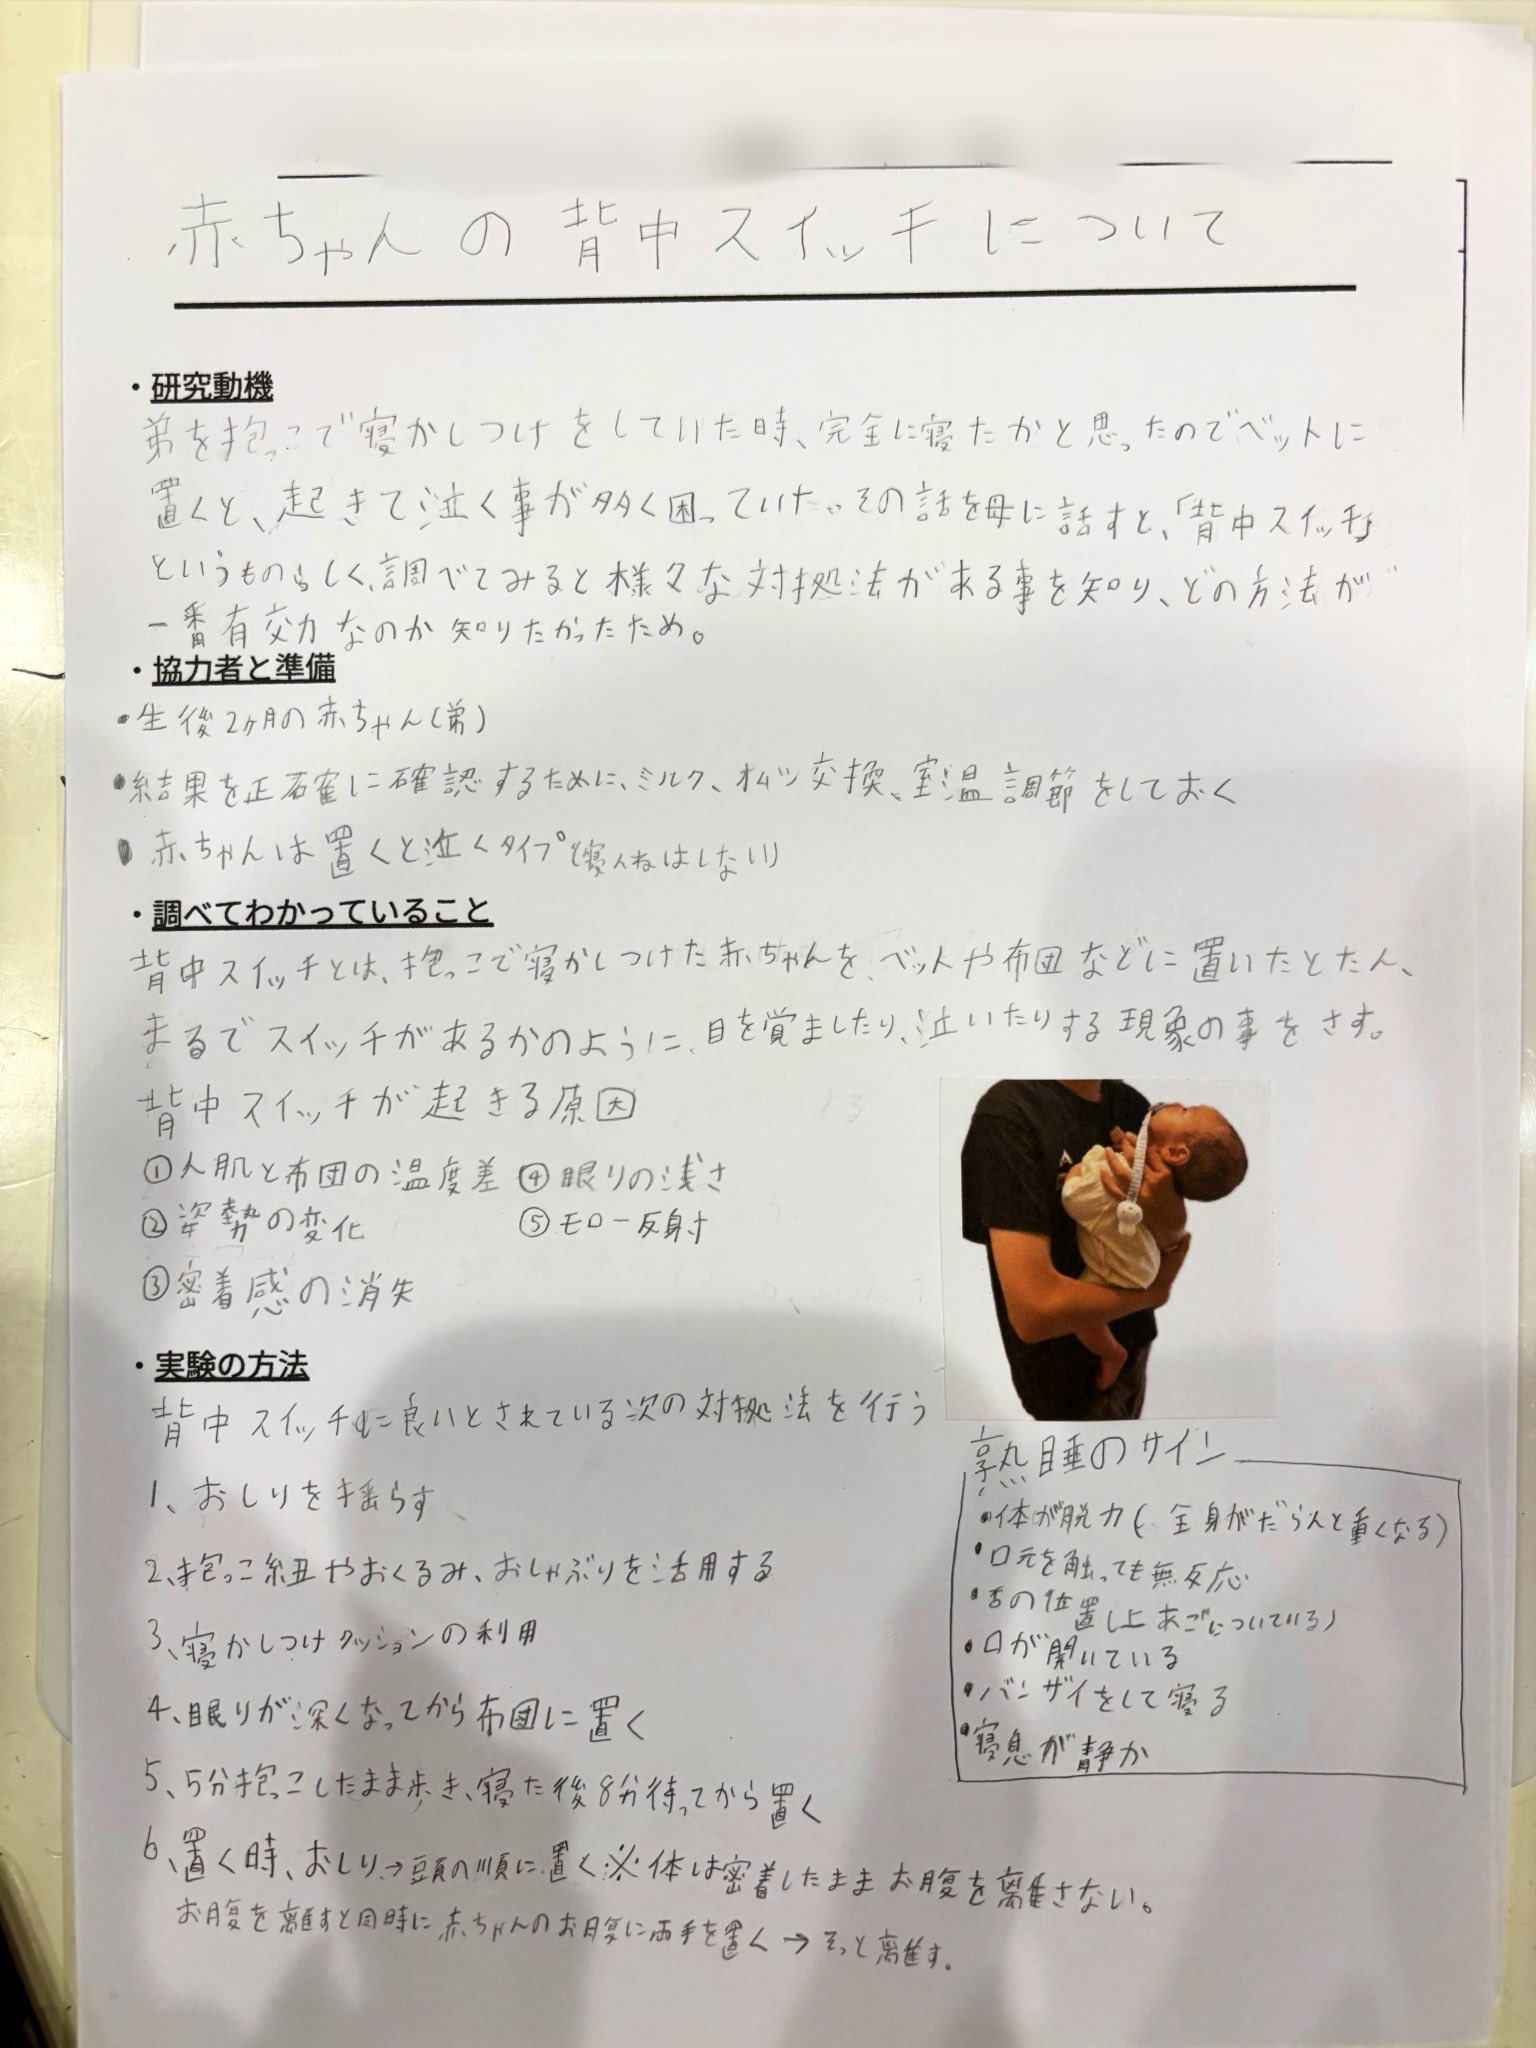 赤ちゃんの背中スイッチについて
・研究動機
弟を抱っこで寝かしつけをしていた時、完全に寝たかと思ったのでベットに
置くと、起きて泣く事が多く困っていた。その話を母に話すと、「背中スイッチ」
というものらしく、調べてみると様々な対拠法がある事を知り、どの方法が
一番有効なのか知りたかったため。
・協力者と準備
・生後2ヶ月の赤ちゃん(弟)
・結果を正確に確認するために、ミルク、オムツ交換、室温調節をしておく
・赤ちゃんは置くと泣くタイプ(寝んねはしない)
・調べてわかっていること
背中スイッチとは、抱っこで寝かしつけた赤ちゃんを、ベットや布団などに置いたとたん、
まるでスイッチがあるかのように、目を覚ましたり、泣いたりする現象の事をさす。
背中スイッチが起きる原因
①人肌と布団の温度差 ④眠りの浅さ
②姿勢の変化 ⑤モロー反射
③密着感の消失
・実験の方法
背中スイッチに良いとされている次の対拠法を行う
1、おしりを揺らす
2、抱っこ紐やおくるみ、おしゃぶりを活用する
3、寝かしつけクッションの利用
4、眠りが深くなってから布団に置く
5、5分抱っこしたまま歩き、寝た後8分待ってから置く
6、置く時、おしり→頭の順に置く※体は密着したままお腹を離さない。
お腹を離すと同時に赤ちゃんのお腹に両手を置く→そっと離す。
熟睡のサイン
・体が脱力(全身がだらんと重くなる)
・口元を触っても無反応
・舌の位置(上あごについている)
・口が開いている
・バンザイをして寝る
・寝息が静か